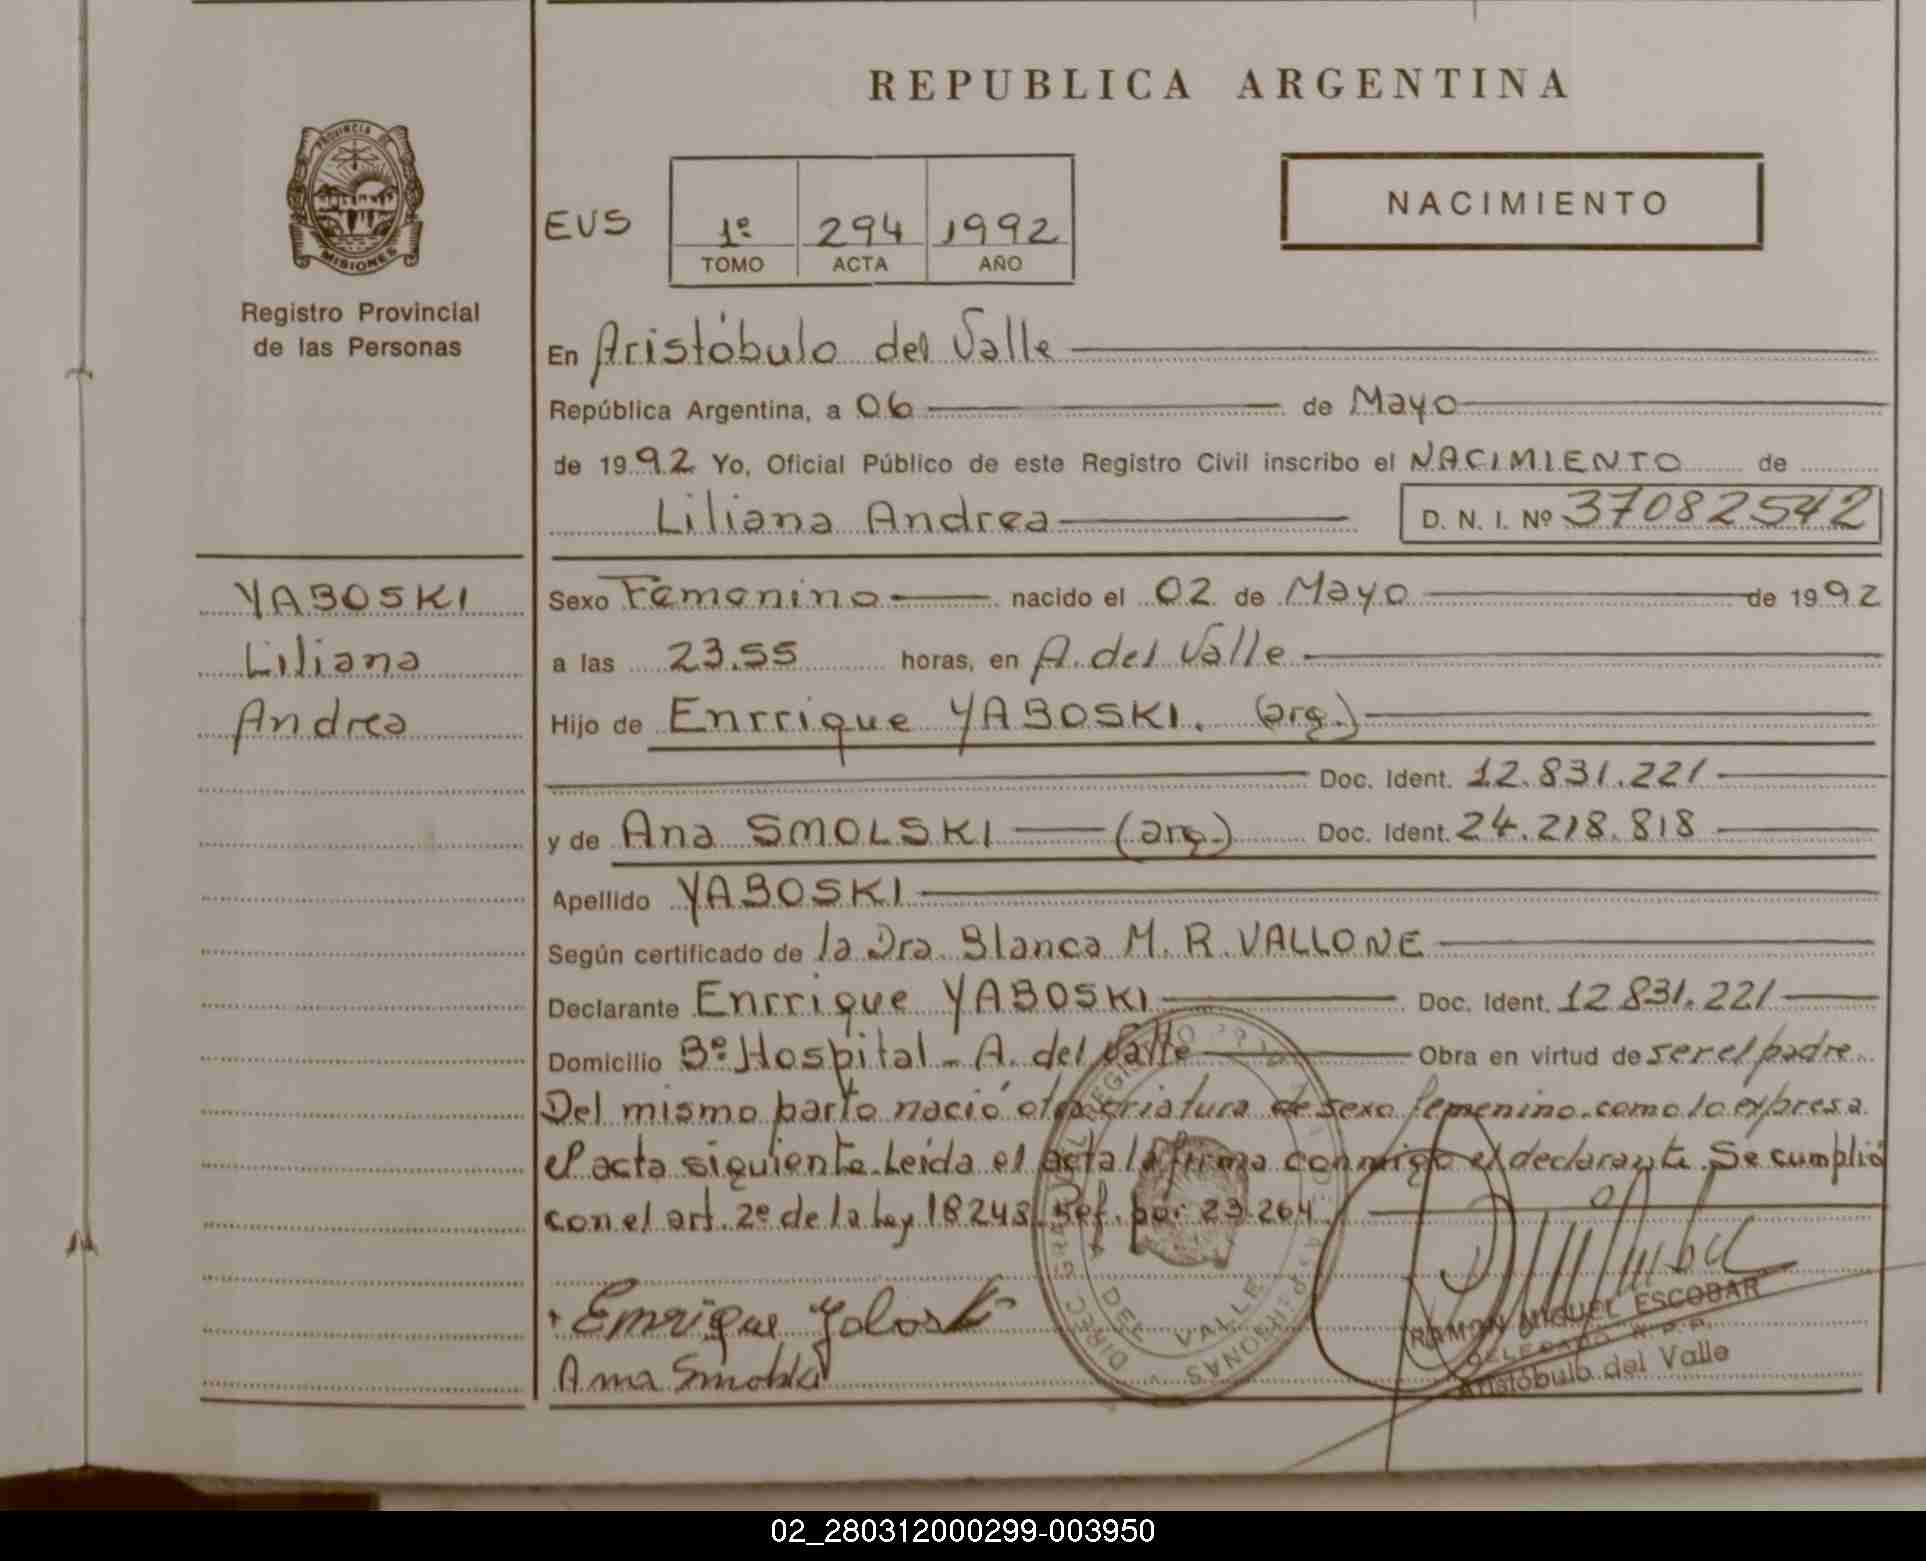 PROVINCIA DE
MISIONES
Registro Provincial
de las Personas
YABOSKI
Liliana
Andrea
REPUBLICA ARGENTINA
NACIMIENTO
EVS
1º 294 1992
TOMO ACTA AÑO
En Aristóbulo del Valle
República Argentina, a 06 de Mayo
de 1992 Yo, Oficial Público de este Registro Civil inscribo el NACIMIENTO de
Liliana Andrea D. N. I. Nº 37082542
Sexo Femenino nacido el 02 de Mayo de 1992
a las 23.55 horas, en A. del Valle
Hijo de Enrrique YABOSKI. (arg.)
Doc. Ident. 12.831.221
y de Ana SMOLSKI (arg.) Doc. Ident. 24.218.818
Apellido YABOSKI
Según certificado de la Dra. Blanca M. R. VALLONE
Declarante Enrrique YABOSKI Doc. Ident. 12.831.221
Domicilio Bº Hospital - A. del Valle Obra en virtud de ser el padre
Del mismo parto nació otra criatura de sexo femenino. como lo expresa
el acta siguiente. Leída el acta la firma conmigo el declarante. Se cumplió
con el art. 2º de la Ley 18248. Ref. por 23.264
Enrrique Yaboski
Ana Smolski
DEL VALLE
RAMON MIGUEL ESCOBAR
DELEGADO R.P.P.
Aristóbulo del Valle
02_280312000299-003950